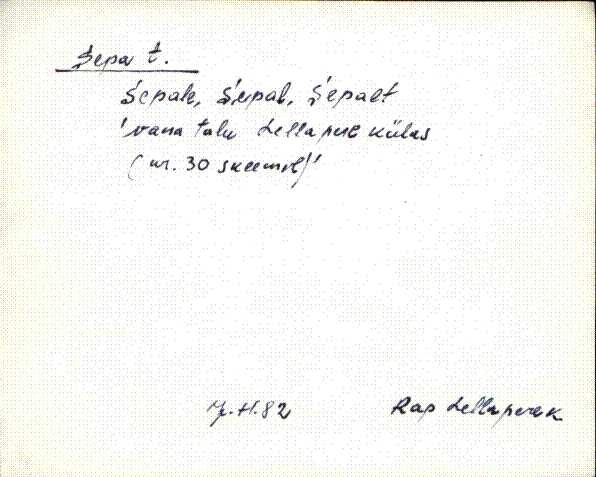 Sepa t.
Sepale, Sepal, Sepalt
'vana talu Lellapere külas
(nr. 30 skeemil)'
Rap Lellapere k